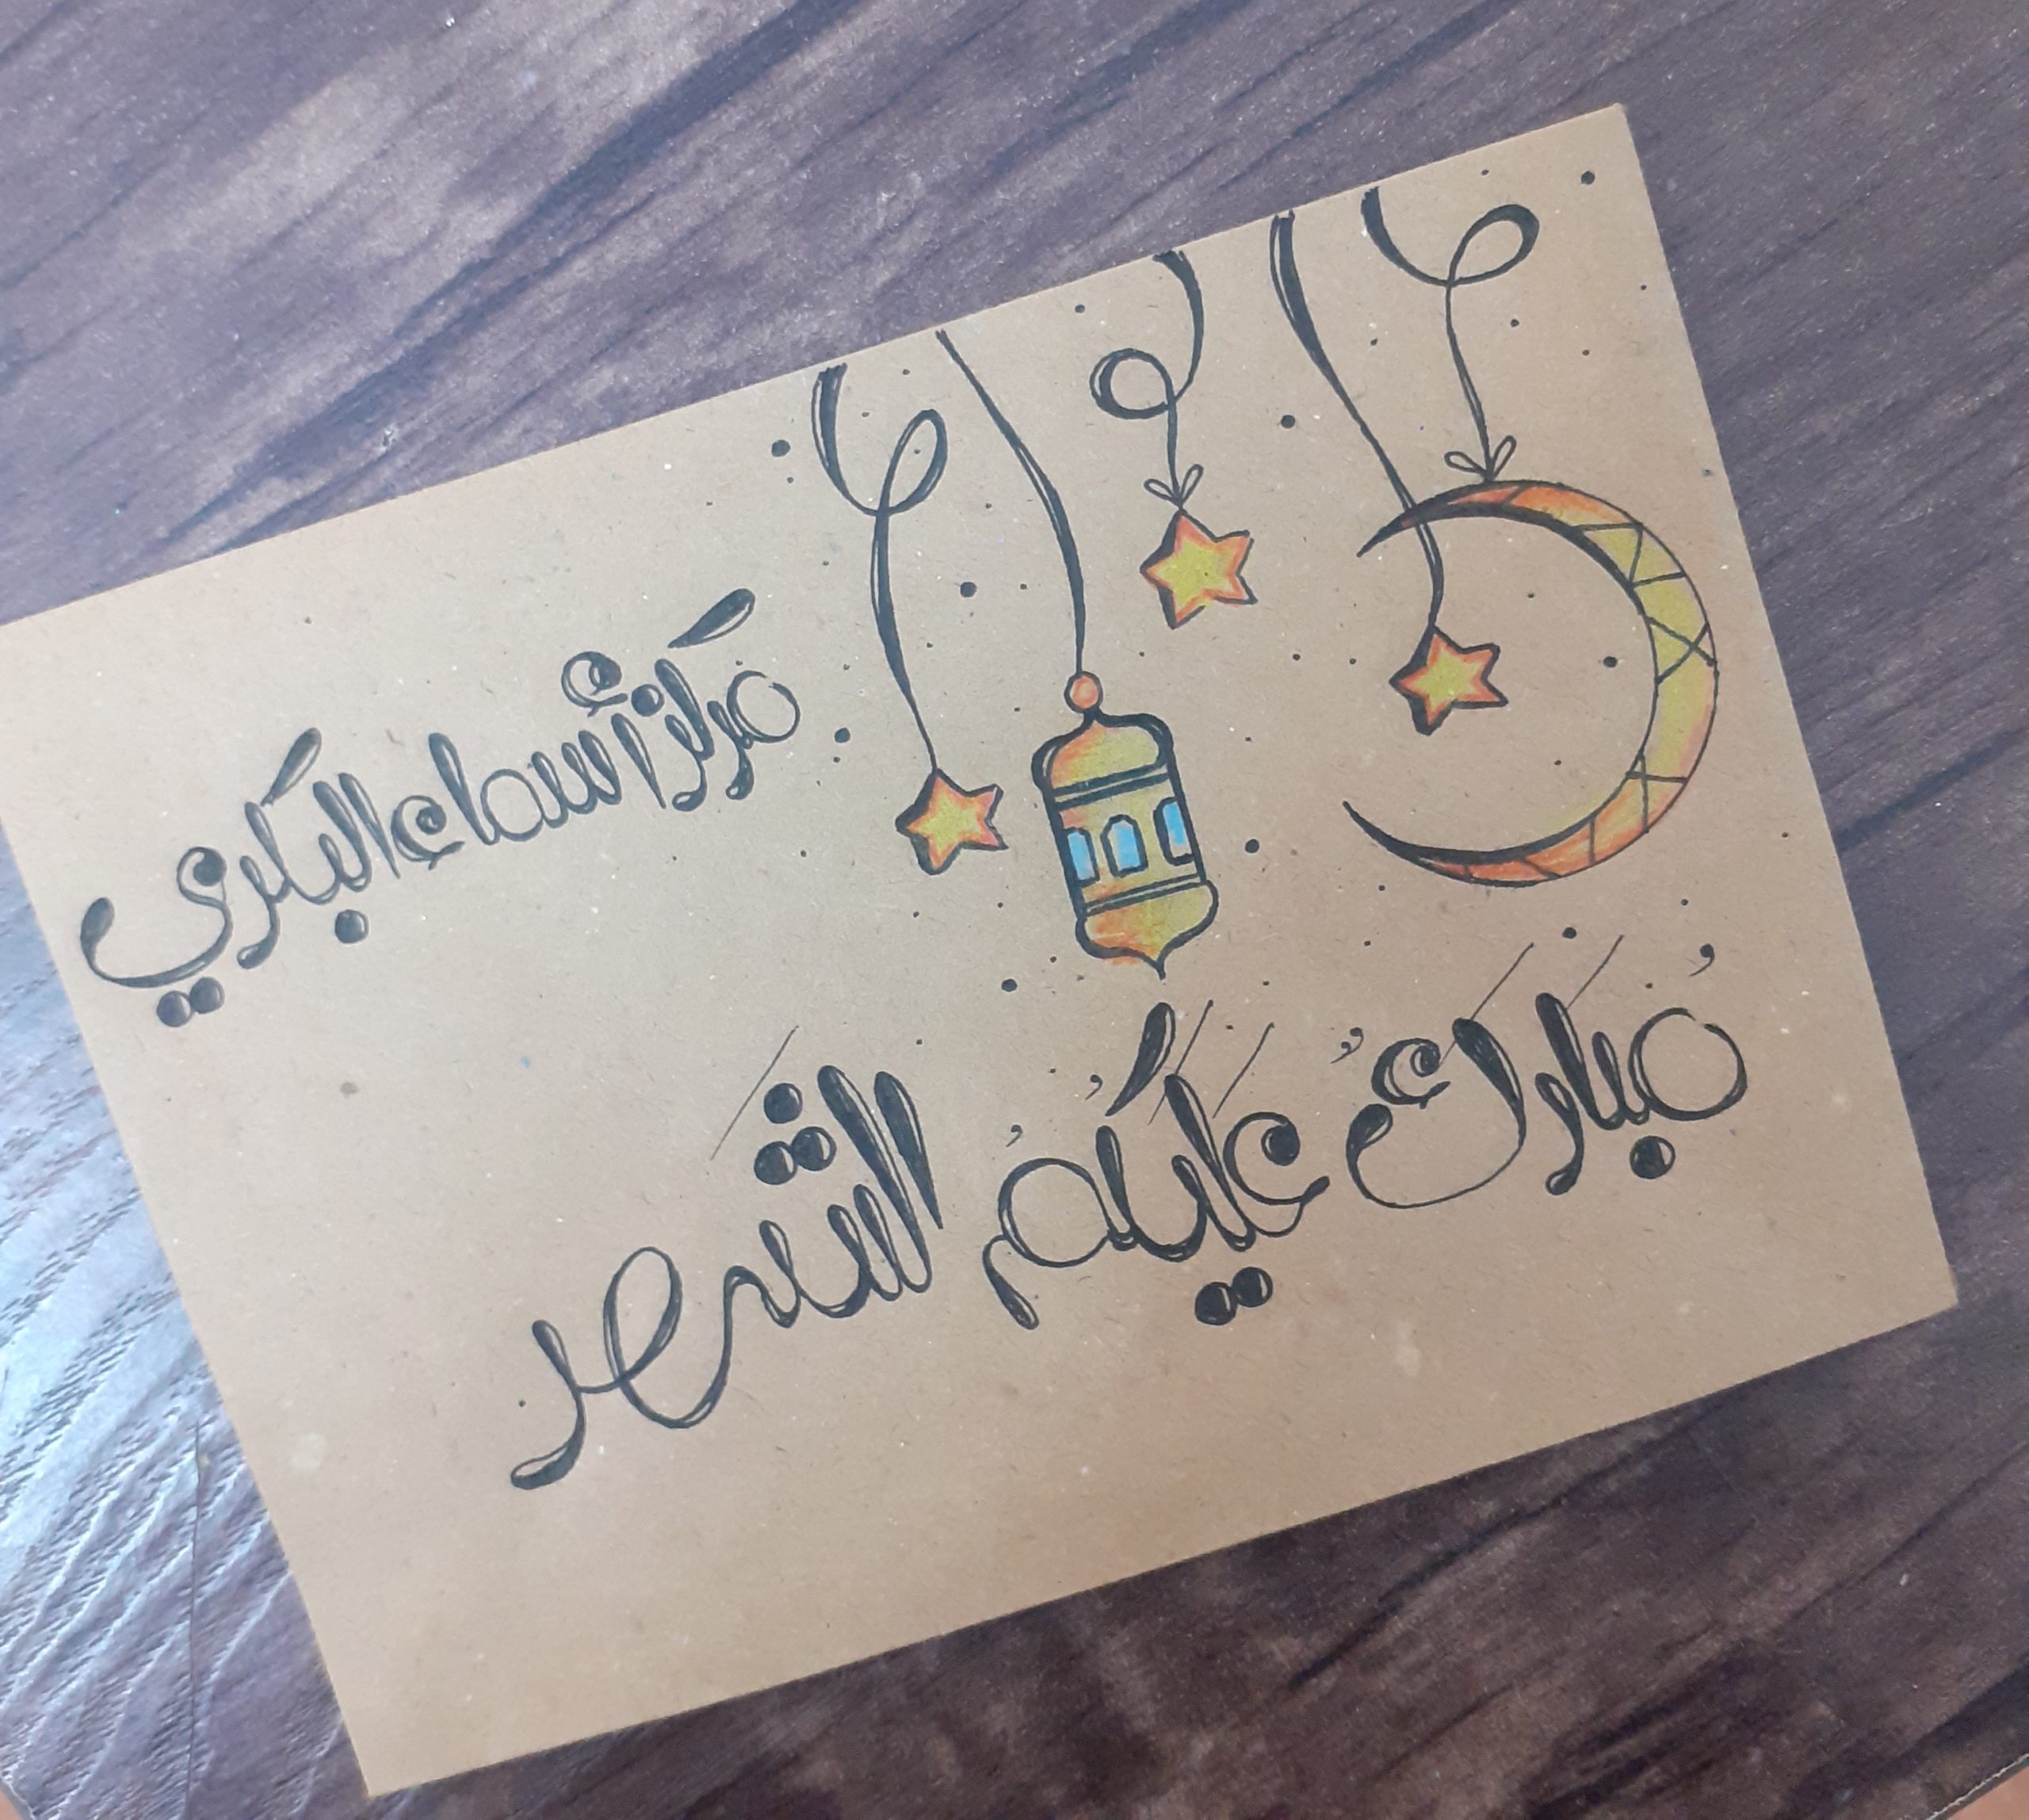 مركز أسماء البكري
مُبَارَكُ عَلَيكُمُ الشَهر